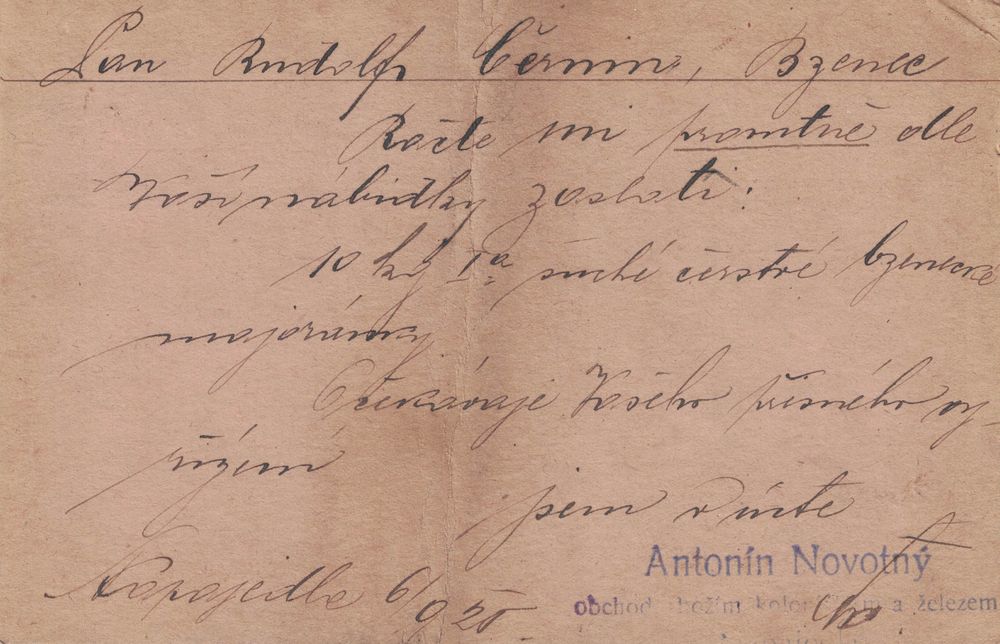 Pan Rudolf Černín, Bzenec
Račte mi promtně dle
Vaší nabídky zaslati:
10 kg Iª suché čerstvé bzenecké
majoránky
Očekávaje Vašeho přesného vy-
řízení
jsem v úctě
Antonín Novotný
Napajedla 6/
obchod zbožím koloniálním a železem